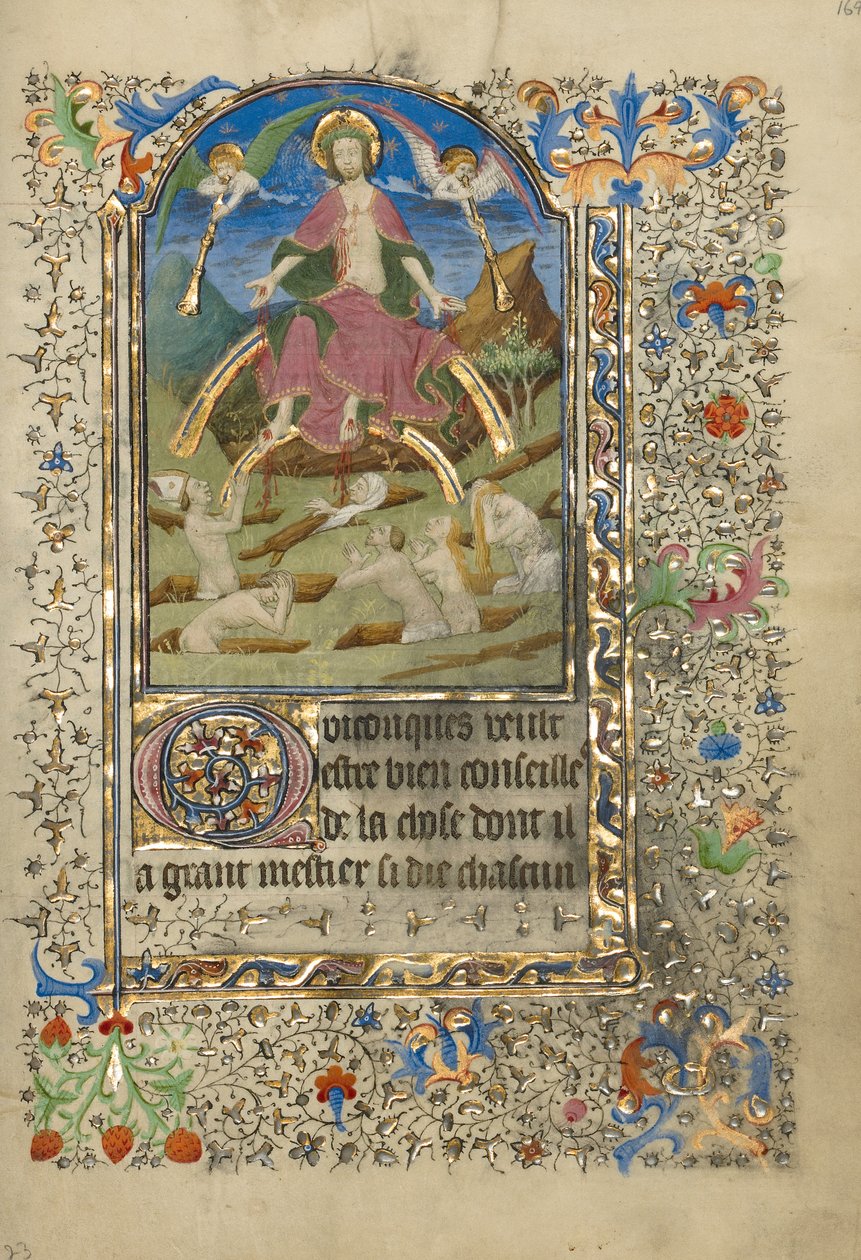 169
Quiconques veult
estre bien conseille
de la chose dont il
a grant mestier si die chascun
23